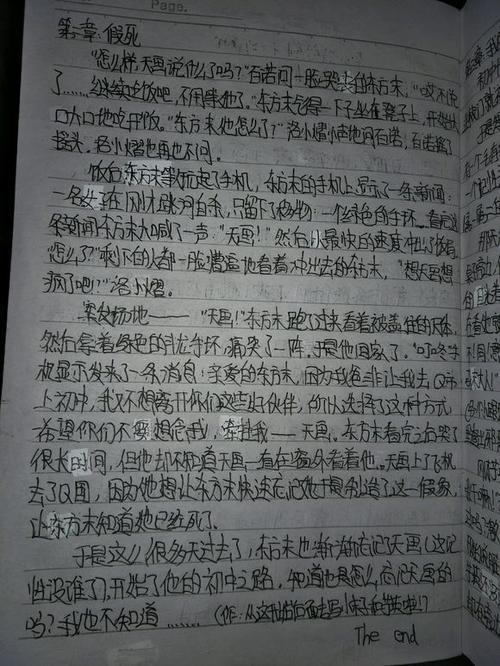 Page.
第六章:假死
"怎么样天画说什么了吗?"石若问一脸哭丧的东方末,"哎不说
了……继续吃饭吧,不用管他了。"东方末气得一下子坐在凳子上,开始大
口大口地吃开饭。"东方末他怎么了?"洛小熠小声地问石若,石若摇了
摇头,洛小熠也再也不问。
饭后东方末就玩起了手机,东方末的手机上显示了一条新闻:
一名女孩在刚才跳河自杀,只留下了遗物:一个绿色的手环。看完这
条新闻东方末大喊了一声:"天画!"然后以最快的速度冲出了饭店。
怎么了?"剩下的人都一脸懵逼地看着冲出去的东方末,"想天画想
疯了吧?"洛小熠。
案发场地——"天画!"东方末跑了过来看着被盖住的尸体,
然后拿着绿色的手环,痛哭了一阵,于是他回家了。"叮咚手
机显示发来了一条消息:亲爱的东方末,因为我爸非让我去Q市
上初中,我又不想离开你们这些好伙伴,所以选择了这种方式,
希望你们不要想念我,牵挂我——天画。东方末看完后哭了
很长时间,但他却不知道天画一直在窗外看着他。天画上了飞机
去了Q国,因为她想让东方末快速忘记她于是制造了这一假象,
让东方末知道她已经死了。
于是这么很多天过去了,东方末也渐渐忘记天画(这记
性没谁了),开始了他的初中之路,知道他是怎么忘记天画的
吗?我也不知道……(作:从这
The end